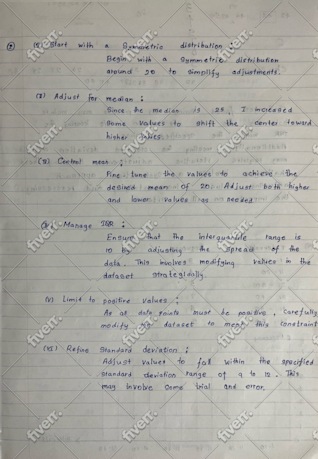 (i) Start with a Symmetric distribution
Begin with a Symmetric distribution
around 20 to simplify adjustments.
(ii) Adjust for median :
Since the median is 25, I increased
some values to shift the center toward
higher values.
Control mean :
Fine tune the values to achieve the
desired mean of 20. Adjust both higher
and lower values as needed
Manage IQR :
Ensure that the interquartile range is
10 by adjusting the spread of the
data. This involves modifying values in the
dataset strategically
(V) Limit to positive values :
As all data points must be positive, carefully
modify dataset to meet this constraint
(VI) Refine Standard deviation :
Adjust values to fall within the specified
standard deviation range of 9 to 12. This
may involve some trial and error.
fiverr.